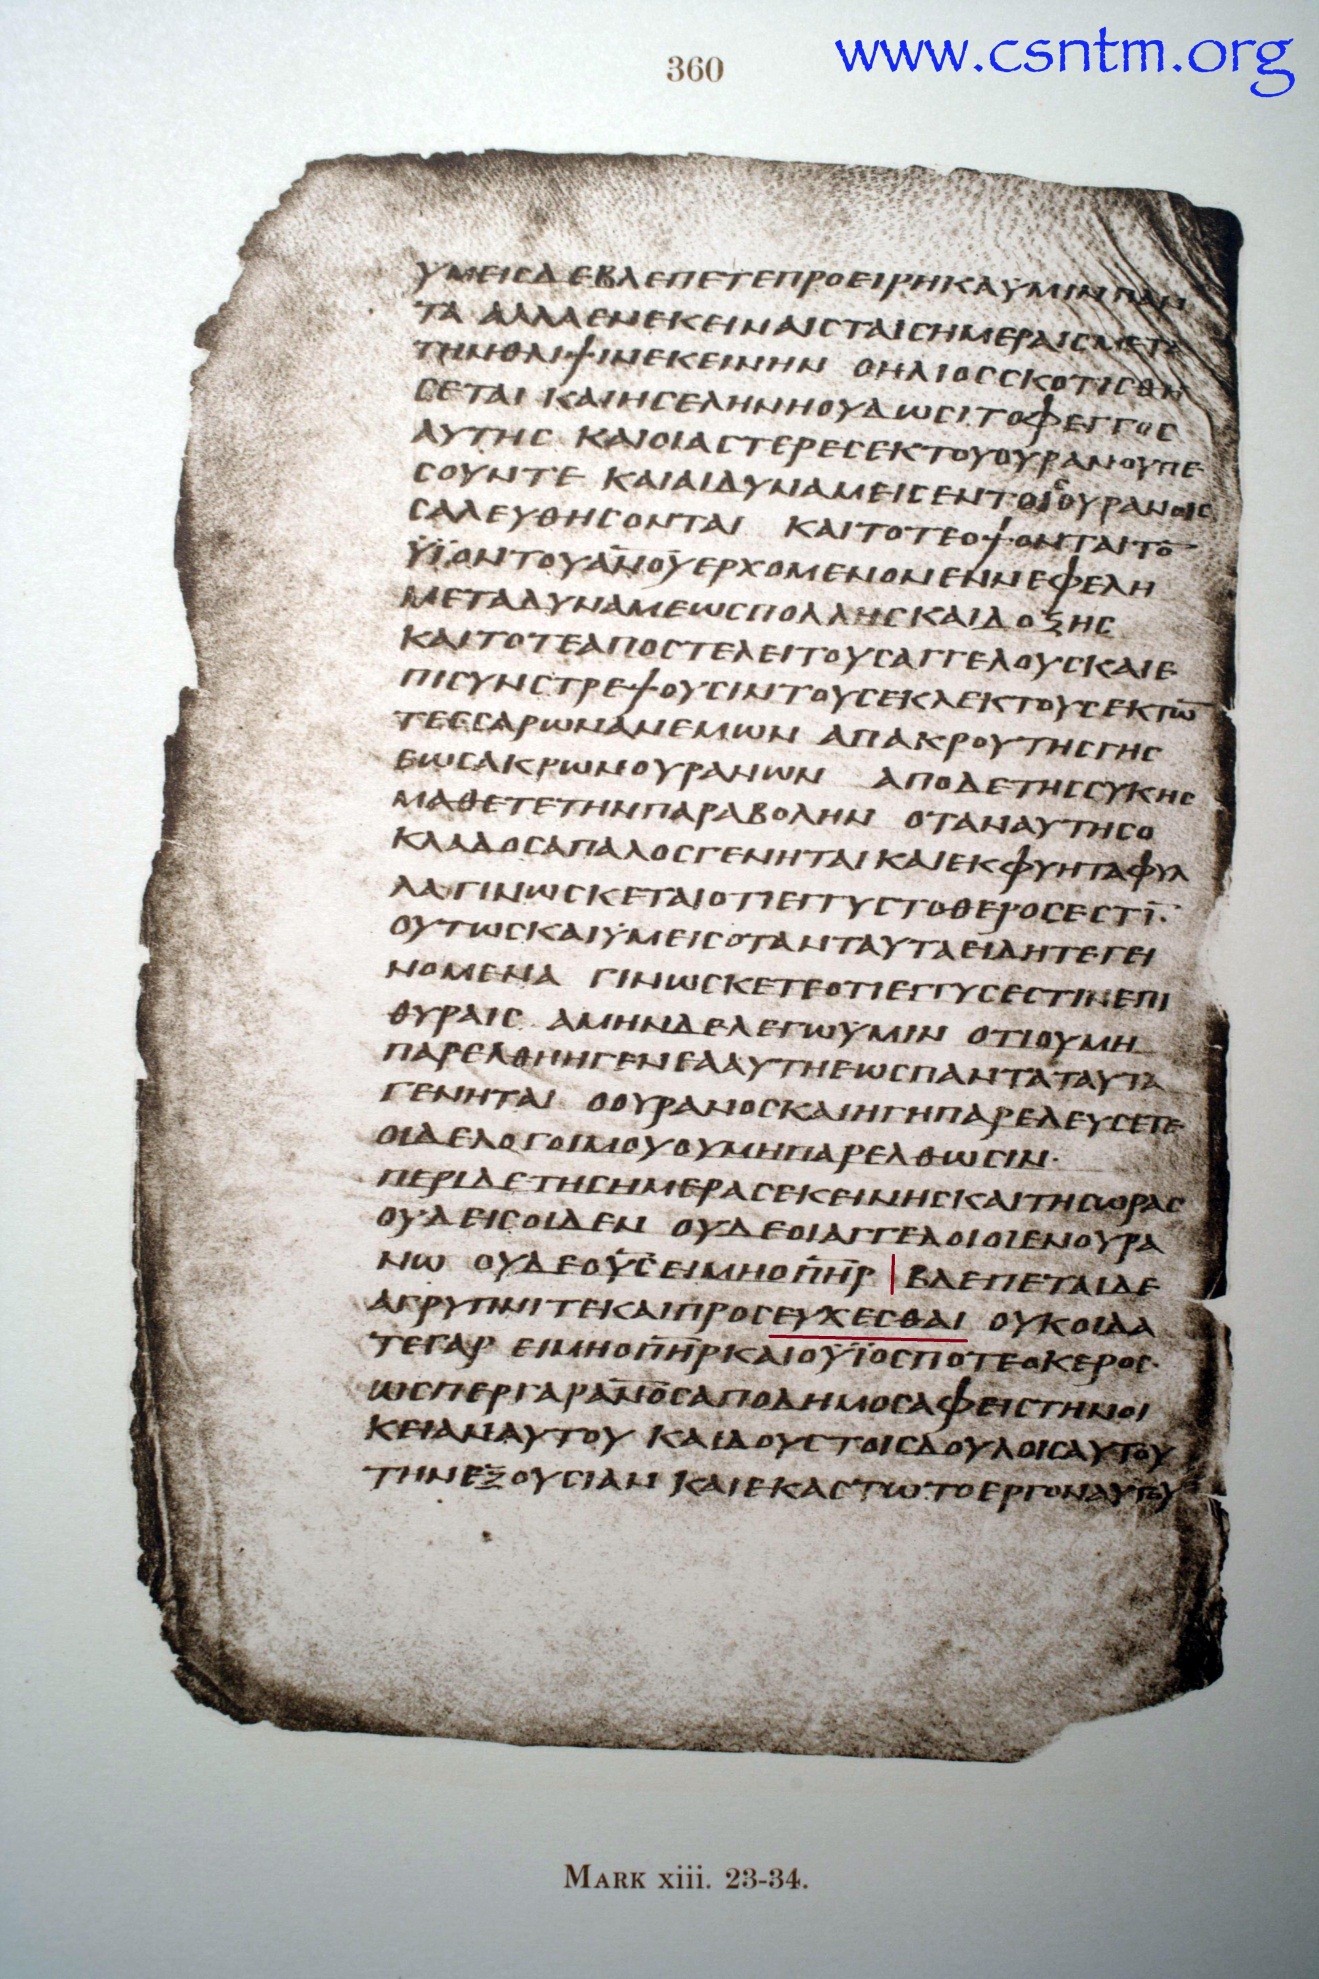 360
www.csntm.org
ΥΜΕΙCΔΕΒΛΕΠΕΤΕΠΡΟΕΙΡΗΚΑΫΜΙΝΠΑΝ
ΤΑ ΑΛΛΑΕΝΕΚΕΙΝΑΙCΤΑΙCΗΜΕΡΑΙCΜΕΤΑ
ΤΗΝΘΛΙΨΙΝΕΚΕΙΝΗΝ ΟΗΛΙΟCCΚΟΤΙCΘΗ
CΕΤΑΙ ΚΑΙΗCΕΛΗΝΗΟΥΔΩCΙΤΟΦΕΓΓΟC
ΑΥΤΗC ΚΑΙΟΙΑCΤΕΡΕCΕΚΤΟΥΟΥΡΑΝΟΥΠΕ
CΟΥΝΤΕ ΚΑΙΑΙΔΥΝΑΜΕΙCΕΝΤΟΙCΟΥΡΑΝΟΙC
CΑΛΕΥΘΗCΟΝΤΑΙ ΚΑΙΤΟΤΕΟΨΟΝΤΑΙΤΟ̅
ΫΪΟΝΤΟΥΑ̅Ν̅Ο̅Υ̅ΕΡΧΟΜΕΝΟΝΕΝΝΕΦΕΛΗ
ΜΕΤΑΔΥΝΑΜΕΩCΠΟΛΛΗCΚΑΙΔΟΞΗC
ΚΑΙΤΟΤΕΑΠΟCΤΕΛΕΙΤΟΥCΑΓΓΕΛΟΥCΚΑΙΕ
ΠΙCΥΝCΤΡΕΨΟΥCΙΝΤΟΥCΕΚΛΕΚΤΟΥCΕΚΤΩ̅
ΤΕCCΑΡΩΝΑΝΕΜΩΝ ΑΠΑΚΡΟΥΤΗCΓΗC
ΕΩCΑΚΡΩΝΟΥΡΑΝΩΝ ΑΠΟΔΕΤΗCCΥΚΗC
ΜΑΘΕΤΕΤΗΝΠΑΡΑΒΟΛΗΝ ΟΤΑΝΑΥΤΗCΟ
ΚΛΑΔΟCΑΠΑΛΟCΓΕΝΗΤΑΙΚΑΙΕΚΦΥΗΤΑΦΥΛ
ΛΑΓΙΝΩCΚΕΤΑΙΟΤΙΕΓΓΥCΤΟΘΕΡΟCΕCΤΙ̅·
ΟΥΤΩCΚΑΙΫΜΕΙCΟΤΑΝΤΑΥΤΑΕΙΔΗΤΕΓΕΙ
ΝΟΜΕΝΑ ΓΙΝΩCΚΕΤΕΟΤΙΕΓΓΥCΕCΤΙΝΕΠΙ
ΘΥΡΑΙC ΑΜΗΝΔΕΛΕΓΩΫΜΙΝ ΟΤΙΟΥΜΗ
ΠΑΡΕΛΘΗΗΓΕΝΕΑΑΥΤΗΕΩCΠΑΝΤΑΤΑΥΤΑ
ΓΕΝΗΤΑΙ ΟΟΥΡΑΝΟCΚΑΙΗΓΗΠΑΡΕΛΕΥCΕΤΕ
ΟΙΔΕΛΟΓΟΙΜΟΥΟΥΜΗΠΑΡΕΛΘΩCΙΝ·
ΠΕΡΙΔΕΤΗCΗΜΕΡΑCΕΚΕΙΝΗCΚΑΙΤΗCΩΡΑC
ΟΥΔΕΙCΟΙΔΕΝ ΟΥΔΕΟΙΑΓΓΕΛΟΙΟΙΕΝΟΥΡΑ
ΝΩ ΟΥΔΕΟΥ̅C̅ΕΙΜΗΟΠ̅Η̅Ρ̅ ΒΛΕΠΕΤΑΙΔΕ
ΑΓΡΥΠΝΙΤΕΚΑΙΠΡΟCΕΥΧΕCΘΑΙ ΟΥΚΟΙΔΑ
ΤΕΓΑΡ ΕΙΜΗΟΠ̅Η̅ΡΚΑΙΟΫΪΟCΠΟΤΕΟΚΕΡΟC·
ΩCΠΕΡΓΑΡΑ̅Ν̅Ο̅CΑΠΟΔΗΜΟCΑΦΕΙCΤΗΝΟΙ
ΚΕΙΑΝΑΥΤΟΥ ΚΑΙΔΟΥCΤΟΙCΔΟΥΛΟΙCΑΥΤΟΥ
ΤΗΝΕΞΟΥCΙΑΝ ΚΑΙΕΚΑCΤΩΤΟΕΡΓΟΝΑΥΤΟΥ
MARK xiii. 23-34.